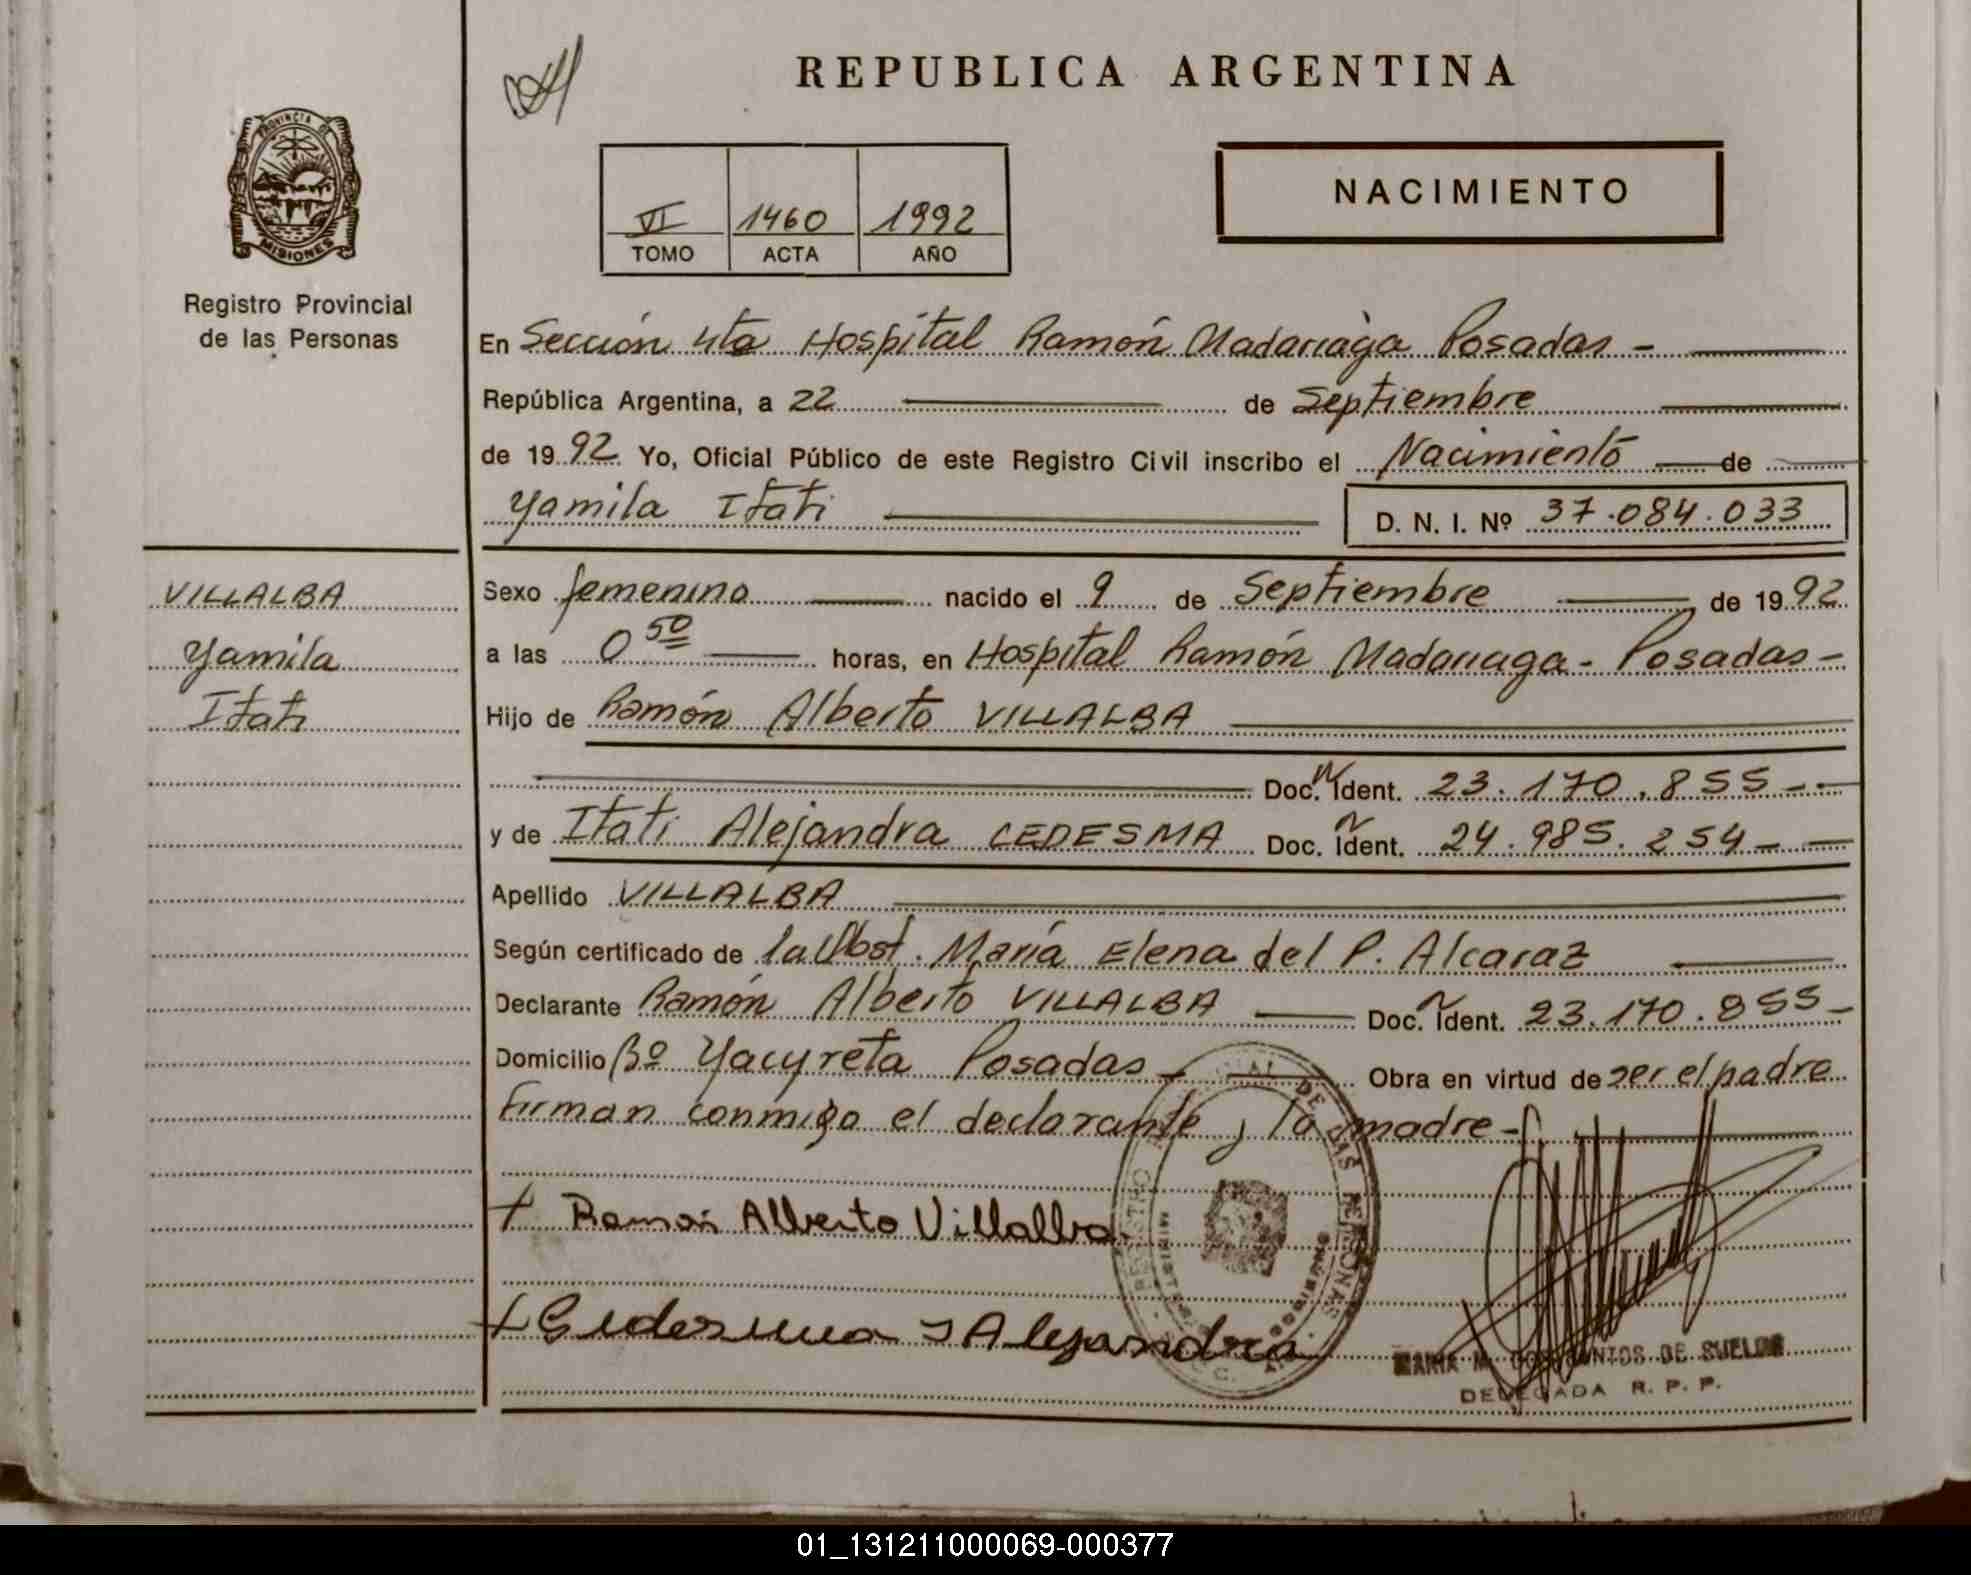 REPUBLICA ARGENTINA
PROVINCIA DE
MISIONES
Registro Provincial
de las Personas
VI 1460 1992
TOMO ACTA AÑO
NACIMIENTO
En Sección 4ta Hospital Ramón Madariaga Posadas -
República Argentina, a 22 de Septiembre
de 1992 Yo, Oficial Público de este Registro Civil inscribo el Nacimiento de
Yamila Itati D. N. I. Nº 37.084.033
VILLALBA
Yamila
Itati
Sexo femenino nacido el 9 de Septiembre de 1992
a las 0 50 horas, en Hospital Ramón Madariaga - Posadas -
Hijo de Ramón Alberto VILLALBA
Doc. Ident. 23.170.855 -
y de Itati Alejandra CEDESMA Doc. Ident. 24.985.254 -
Apellido VILLALBA
Según certificado de la Obst. María Elena del P. Alcaraz
Declarante Ramón Alberto VILLALBA Doc. Ident. 23.170.855 -
Domicilio Bº Yacyreta Posadas - Obra en virtud de ser el padre
Firman conmigo el declarante y la madre -
Ramón Alberto Villalba
Alejandra
REGISTRO DE LAS PERSONAS
MARIA DE SUELDO
DELEGADA R. P. P.
01_131211000069-000377